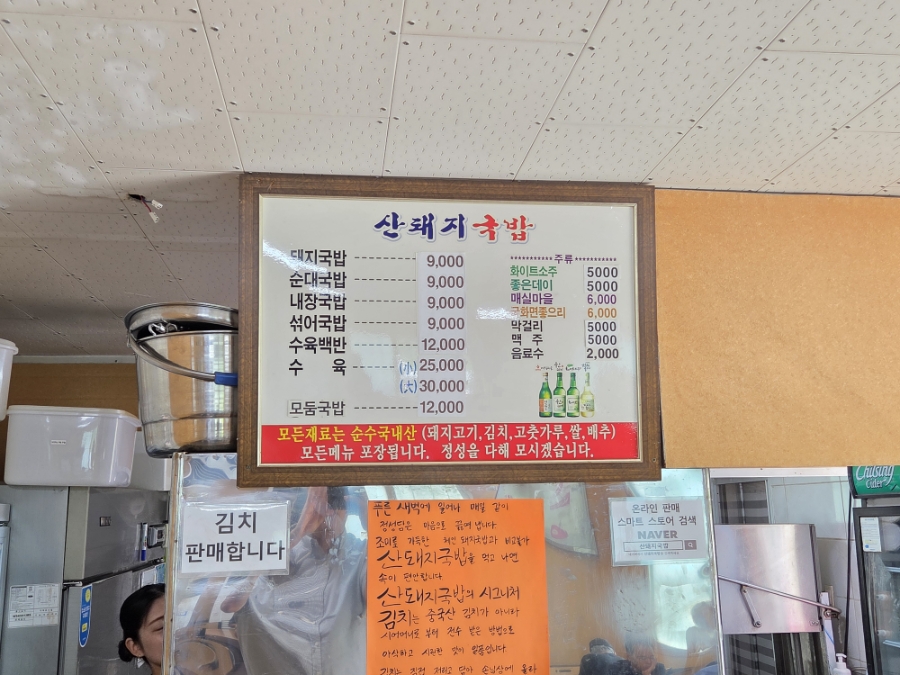 산돼지국밥
돼지국밥 9,000
순대국밥 9,000
내장국밥 9,000
섞어국밥 9,000
수육백반 12,000
수 육 (小) 25,000
(大) 30,000
모둠국밥 12,000
주류
화이트소주 5000
좋은데이 5000
매실마을 6,000
국화면좋으리 6,000
막걸리 5000
맥 주 5000
음료수 2,000
모든재료는 순수국내산 (돼지고기,김치,고춧가루,쌀,배추)
모든메뉴 포장됩니다. 정성을 다해 모시겠습니다.
김치
판매합니다
푸른 새벽에 일어나 매일 같이
정성담은 마음으로 끓여 냅니다
조미료 가득한 돼지국밥과 비교불가
산돼지국밥을 먹고 나면
속이 편안합니다
산돼지국밥의 시그니처
김치는 중국산 김치가 아니라
시어머니로 부터 전수 받은 방법으로
아삭하고 시원한 맛이 일품입니다
김치는 직접 담아 손님상에 올라
온라인 판매
스마트 스토어 검색
NAVER
산돼지국밥
Chilsung
Cider